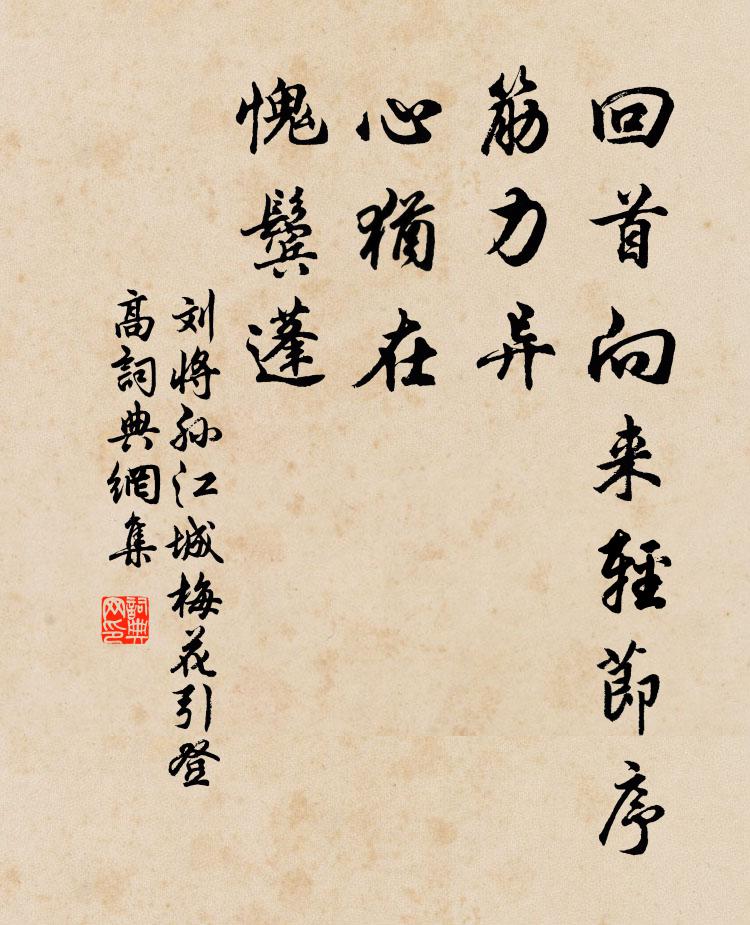 回首向来輕節序
筋力异
心猶在
愧鬓蓬
刘将孙江城梅花引登
高詞典網集
詞典
网印